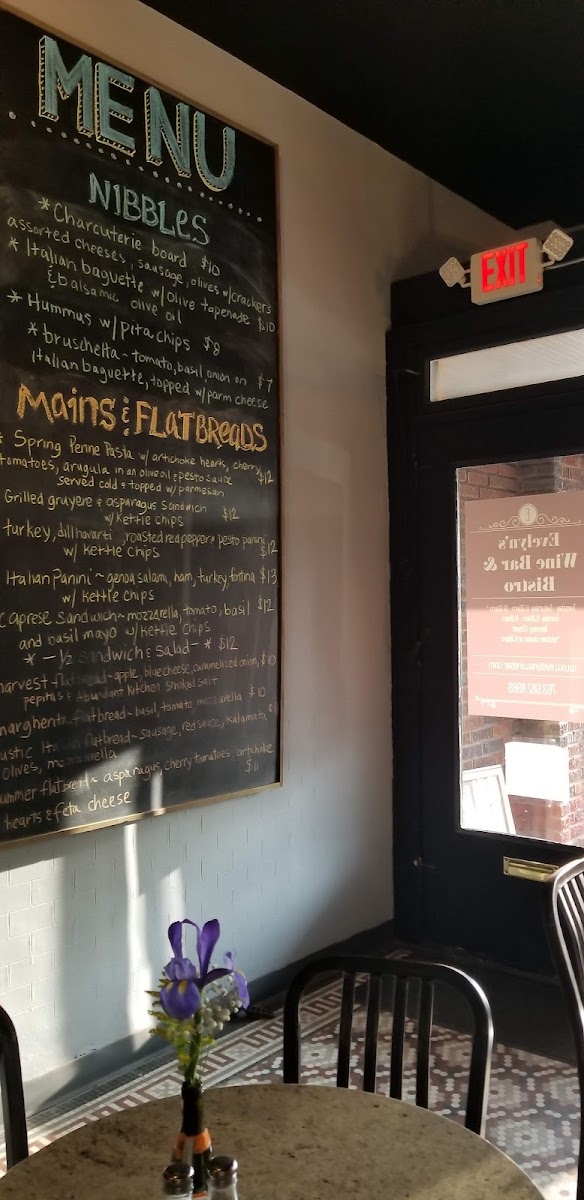 MENU
NIBBLES
* Charcuterie board $10
assorted cheeses, sausage, olives w/crackers
* Italian baguette w/olive tapenade $10
& balsamic olive oil
* Hummus w/pita chips $8
* bruschetta ~ tomato, basil onion on $7
Italian baguette, topped w/parm cheese
Mains & FLATBREADS
* Spring Penne Pasta w/ artichoke hearts, cherry
tomatoes, arugula in an olive oil & pesto sauce $12
served cold & topped w/parmesan
Grilled gruyere & asparagus sandwich $12
w/kettle chips
turkey, dill havarti, roasted red pepper & pesto panini
w/ kettle chips $12
Italian Panini ~ genoa salami, ham, turkey, fontina $13
w/ kettle chips
caprese sandwich ~ mozzarella, tomato, basil $12
and basil mayo w/kettle chips
* - ½ sandwich & salad - * $12
harvest flatbread - apple, blue cheese, caramelized onion, $10
pepitas & abundant kitchen smoked salt
margherita flatbread ~ basil, tomato mozzarella $10
ustic flatbread ~ sausage, red sauce, kalamata
olives, mozzarella
ummer flatbread ~ asparagus, cherry tomatoes, artichoke
hearts & feta cheese $11
EXIT
Evelyn's
Wine Bar &
Bistro
763.682.8989